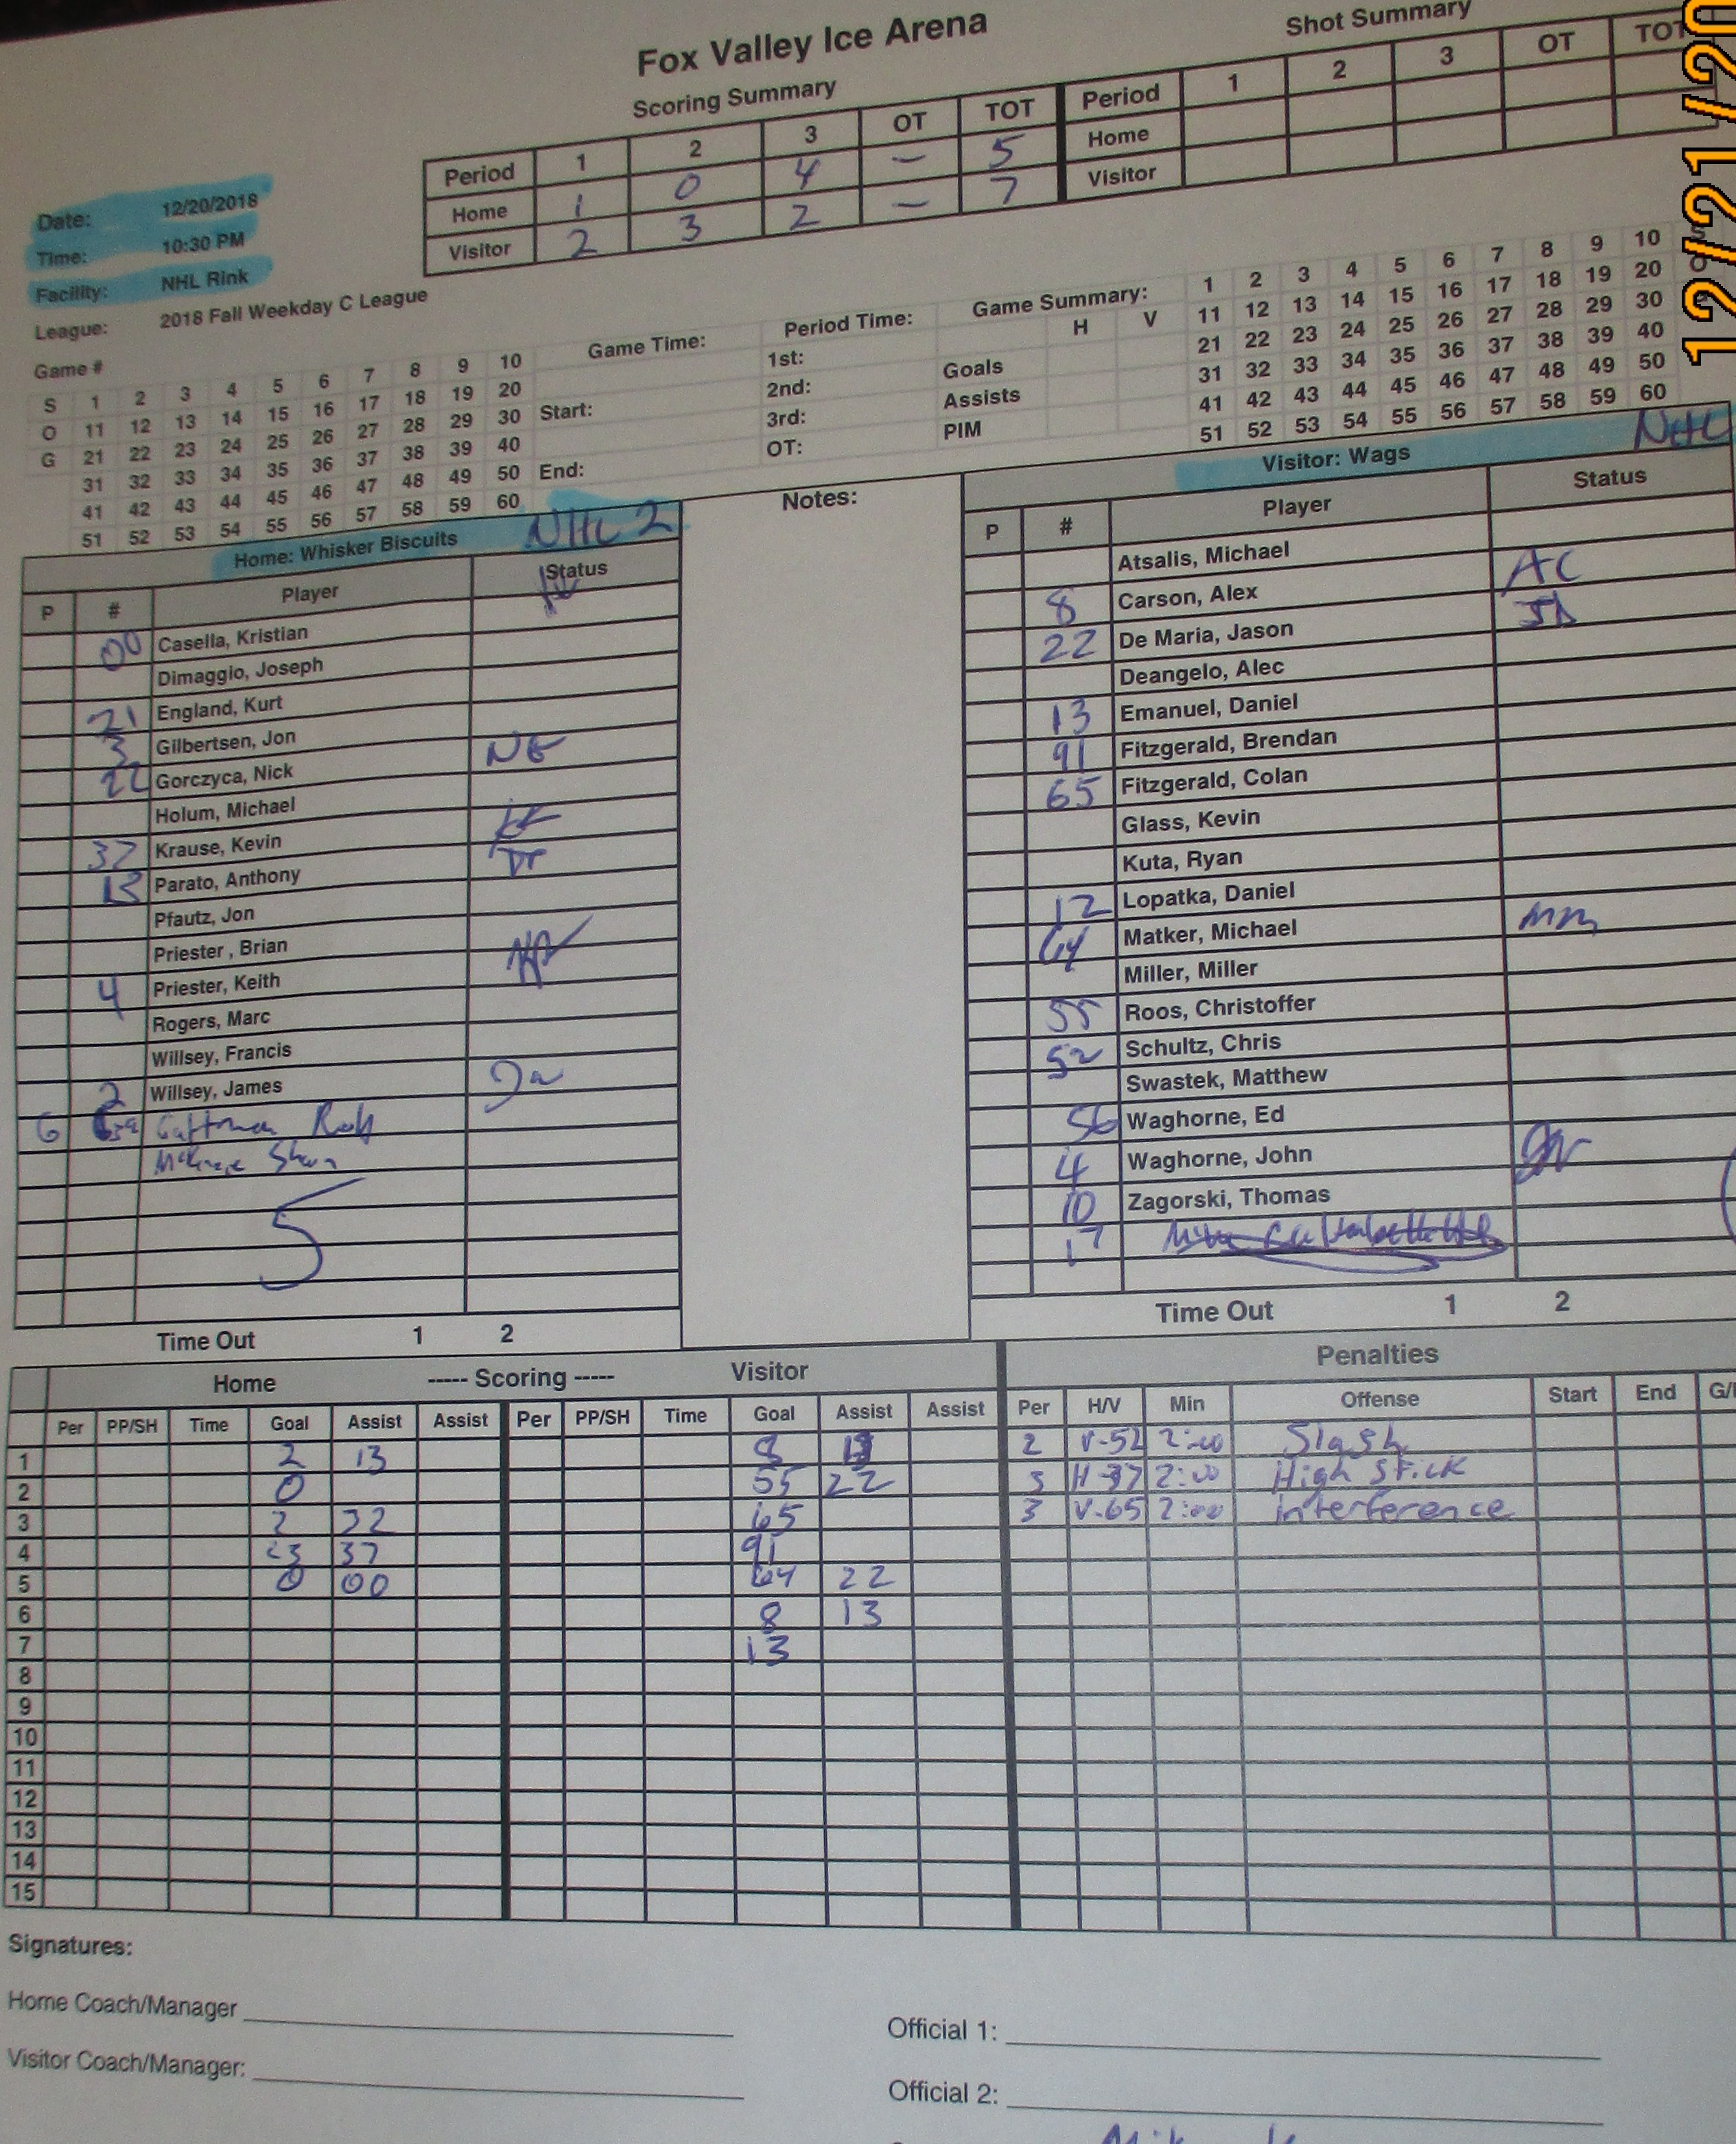 Fox Valley Ice Arena
Scoring Summary
Shot Summary
Period 1 2 3 OT TOT
Home 1 0 4 — 5
Visitor 2 3 2 — 7
Period 1 2 3 OT TOT
Home
Visitor
12/21/20
Date: 12/20/2018
Time: 10:30 PM
Facility: NHL Rink
League: 2018 Fall Weekday C League
Game #
S 1 2 3 4 5 6 7 8 9 10
O 11 12 13 14 15 16 17 18 19 20
G 21 22 23 24 25 26 27 28 29 30
31 32 33 34 35 36 37 38 39 40
41 42 43 44 45 46 47 48 49 50
51 52 53 54 55 56 57 58 59 60
Game Time:
Start:
End:
Period Time:
1st:
2nd:
3rd:
OT:
Game Summary:
H V
Goals
Assists
PIM
1 2 3 4 5 6 7 8 9 10 S
11 12 13 14 15 16 17 18 19 20 O
21 22 23 24 25 26 27 28 29 30
31 32 33 34 35 36 37 38 39 40
41 42 43 44 45 46 47 48 49 50
51 52 53 54 55 56 57 58 59 60
Home: Whisker Biscuits NHL 2
P # Player Status
00 Casella, Kristian
Dimaggio, Joseph
21 England, Kurt
3 Gilbertsen, Jon
22 Gorczyca, Nick NG
Holum, Michael
37 Krause, Kevin
13 Parato, Anthony
Pfautz, Jon
Priester , Brian
4 Priester, Keith
Rogers, Marc
Willsey, Francis
2 Willsey, James
G
5
Time Out 1 2
Notes:
Visitor: Wags NHL
P # Player Status
Atsalis, Michael
8 Carson, Alex AC
22 De Maria, Jason JD
Deangelo, Alec
13 Emanuel, Daniel
91 Fitzgerald, Brendan
65 Fitzgerald, Colan
Glass, Kevin
Kuta, Ryan
12 Lopatka, Daniel
64 Matker, Michael MM
Miller, Miller
55 Roos, Christoffer
52 Schultz, Chris
Swastek, Matthew
56 Waghorne, Ed
4 Waghorne, John JW
10 Zagorski, Thomas
17
Time Out 1 2
Home ----- Scoring ----- Visitor
Penalties
Per PP/SH Time Goal Assist Assist Per PP/SH Time Goal Assist Assist Per H/V Min Offense Start End
1 2 13 8 2 V-52 2:00 Slash
2 0 55 22 3 H-37 2:00 High Stick
3 2 32 65 3 V-65 2:00 interference
4 37 91
5 0 00 64 22
6 8 13
7 13
8
9
10
11
12
13
14
15
Signatures:
Home Coach/Manager
Visitor Coach/Manager:
Official 1:
Official 2: